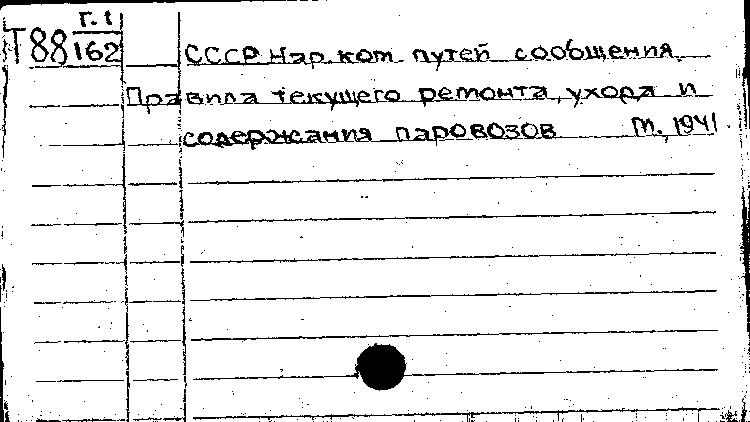 Т88 Г.1
162
СССР Нар. ком. путей сообщения.
Правила текущего ремонта, ухода и
содержания паровозов М., 1941